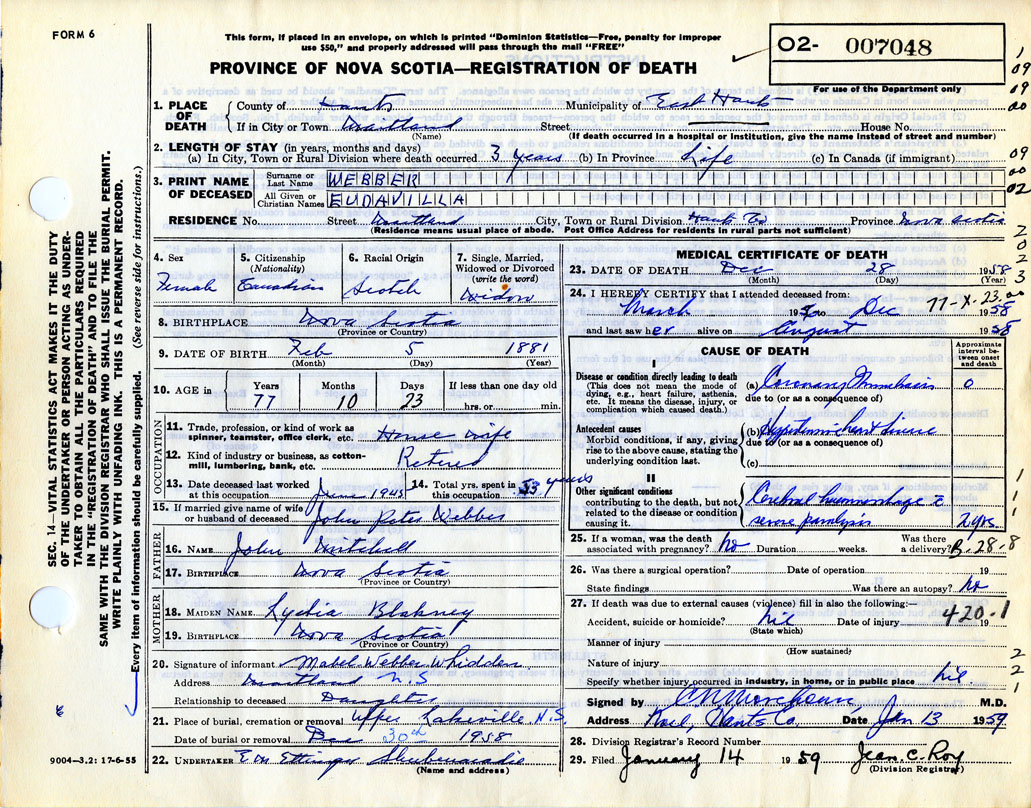 FORM 6
This form, if placed in an envelope, on which is printed "Dominion Statistics—Free, penalty for improper
use $50," and properly addressed will pass through the mail "FREE"
PROVINCE OF NOVA SCOTIA—REGISTRATION OF DEATH
02- 007048
For use of the Department only
1
09
09
00
1. PLACE OF DEATH
County of Hants Municipality of East Hants
If in City or Town Maitland Street House No.
(Name) (If death occurred in a hospital or institution, give the name instead of street and number)
2. LENGTH OF STAY (in years, months and days)
(a) In City, Town or Rural Division where death occurred 3 years (b) In Province Life (c) In Canada (if immigrant)
09
00
02
3. PRINT NAME OF DECEASED
Surname or Last Name WEBBER
All Given or Christian Names EUDAVILLA
RESIDENCE No. Street Maitland City, Town or Rural Division Hants Co Province Nova Scotia
(Residence means usual place of abode. Post Office Address for residents in rural parts not sufficient)
2
0
2
3
4. Sex
Female
5. Citizenship
(Nationality)
Canadian
6. Racial Origin
Scotch
7. Single, Married,
Widowed or Divorced
(write the word)
Widow
8. BIRTHPLACE Nova Scotia
(Province or Country)
9. DATE OF BIRTH Feb 5 1881
(Month) (Day) (Year)
10. AGE in
Years Months Days If less than one day old
77 10 23 hrs. or min.
OCCUPATION
11. Trade, profession, or kind of work as
spinner, teamster, office clerk, etc. House wife
12. Kind of industry or business, as cotton-
mill, lumbering, bank, etc. Retired
13. Date deceased last worked
at this occupation June 1945
14. Total yrs. spent in
this occupation 53 years
15. If married give name of wife
or husband of deceased John Peter Webber
FATHER
16. NAME John Mitchell
17. BIRTHPLACE Nova Scotia
(Province or Country)
MOTHER
18. MAIDEN NAME Lydia Blakney
19. BIRTHPLACE Nova Scotia
(Province or Country)
20. Signature of informant Mabel Webber Whidden
Address Maitland N.S
Relationship to deceased Daughter
21. Place of burial, cremation or removal Upper Lakeville N.S
Date of burial or removal Dec 30th 1958
22. UNDERTAKER E W Ettinger Shubenacadie
(Name and address)
MEDICAL CERTIFICATE OF DEATH
23. DATE OF DEATH Dec 28 1958
(Month) (Day) (Year)
24. I HEREBY CERTIFY that I attended deceased from:
77-X-23.00
March 195 to Dec 1958
and last saw her alive on August 1958
CAUSE OF DEATH
Approximate
interval be-
tween onset
and death
I
Disease or condition directly leading to death
(This does not mean the mode of
dying, e.g., heart failure, asthenia,
etc. It means the disease, injury, or
complication which caused death.)
(a) Coronary Thrombosis 0
due to (or as a consequence of)
Antecedent causes
Morbid conditions, if any, giving
rise to the above cause, stating the
underlying condition last.
(b) Hypertensive heart disease
due to (or as a consequence of)
(c)
II
Other significant conditions
contributing to the death, but not
related to the disease or condition
causing it.
Cerebral hemorrhage c̄
severe paralysis 2 yrs.
1
1
1
25. If a woman, was the death
associated with pregnancy? no Duration weeks.
Was there
a delivery? B-28-8
26. Was there a surgical operation? Date of operation 19
State findings Was there an autopsy? No
27. If death was due to external causes (violence) fill in also the following:—
420-1
Accident, suicide or homicide? nil Date of injury 19
(State which)
Manner of injury
(How sustained)
Nature of injury
Specify whether injury occurred in industry, in home, or in public place nil
2
2
1
Signed by M.D.
Address Noel, Hants Co. Date Jan 13 1959.
28. Division Registrar's Record Number
29. Filed January 14 1959 Jean C. Roy
(Division Registrar)
SEC. 14—VITAL STATISTICS ACT MAKES IT THE DUTY
OF THE UNDERTAKER OR PERSON ACTING AS UNDER-
TAKER TO OBTAIN ALL THE PARTICULARS REQUIRED
IN THE "REGISTRATION OF DEATH" AND TO FILE THE
SAME WITH THE DIVISION REGISTRAR WHO SHALL ISSUE THE BURIAL PERMIT.
WRITE PLAINLY WITH UNFADING INK. THIS IS A PERMANENT RECORD.
Every item of information should be carefully supplied. (See reverse side for instructions.)
9004—3.2: 17-6-55